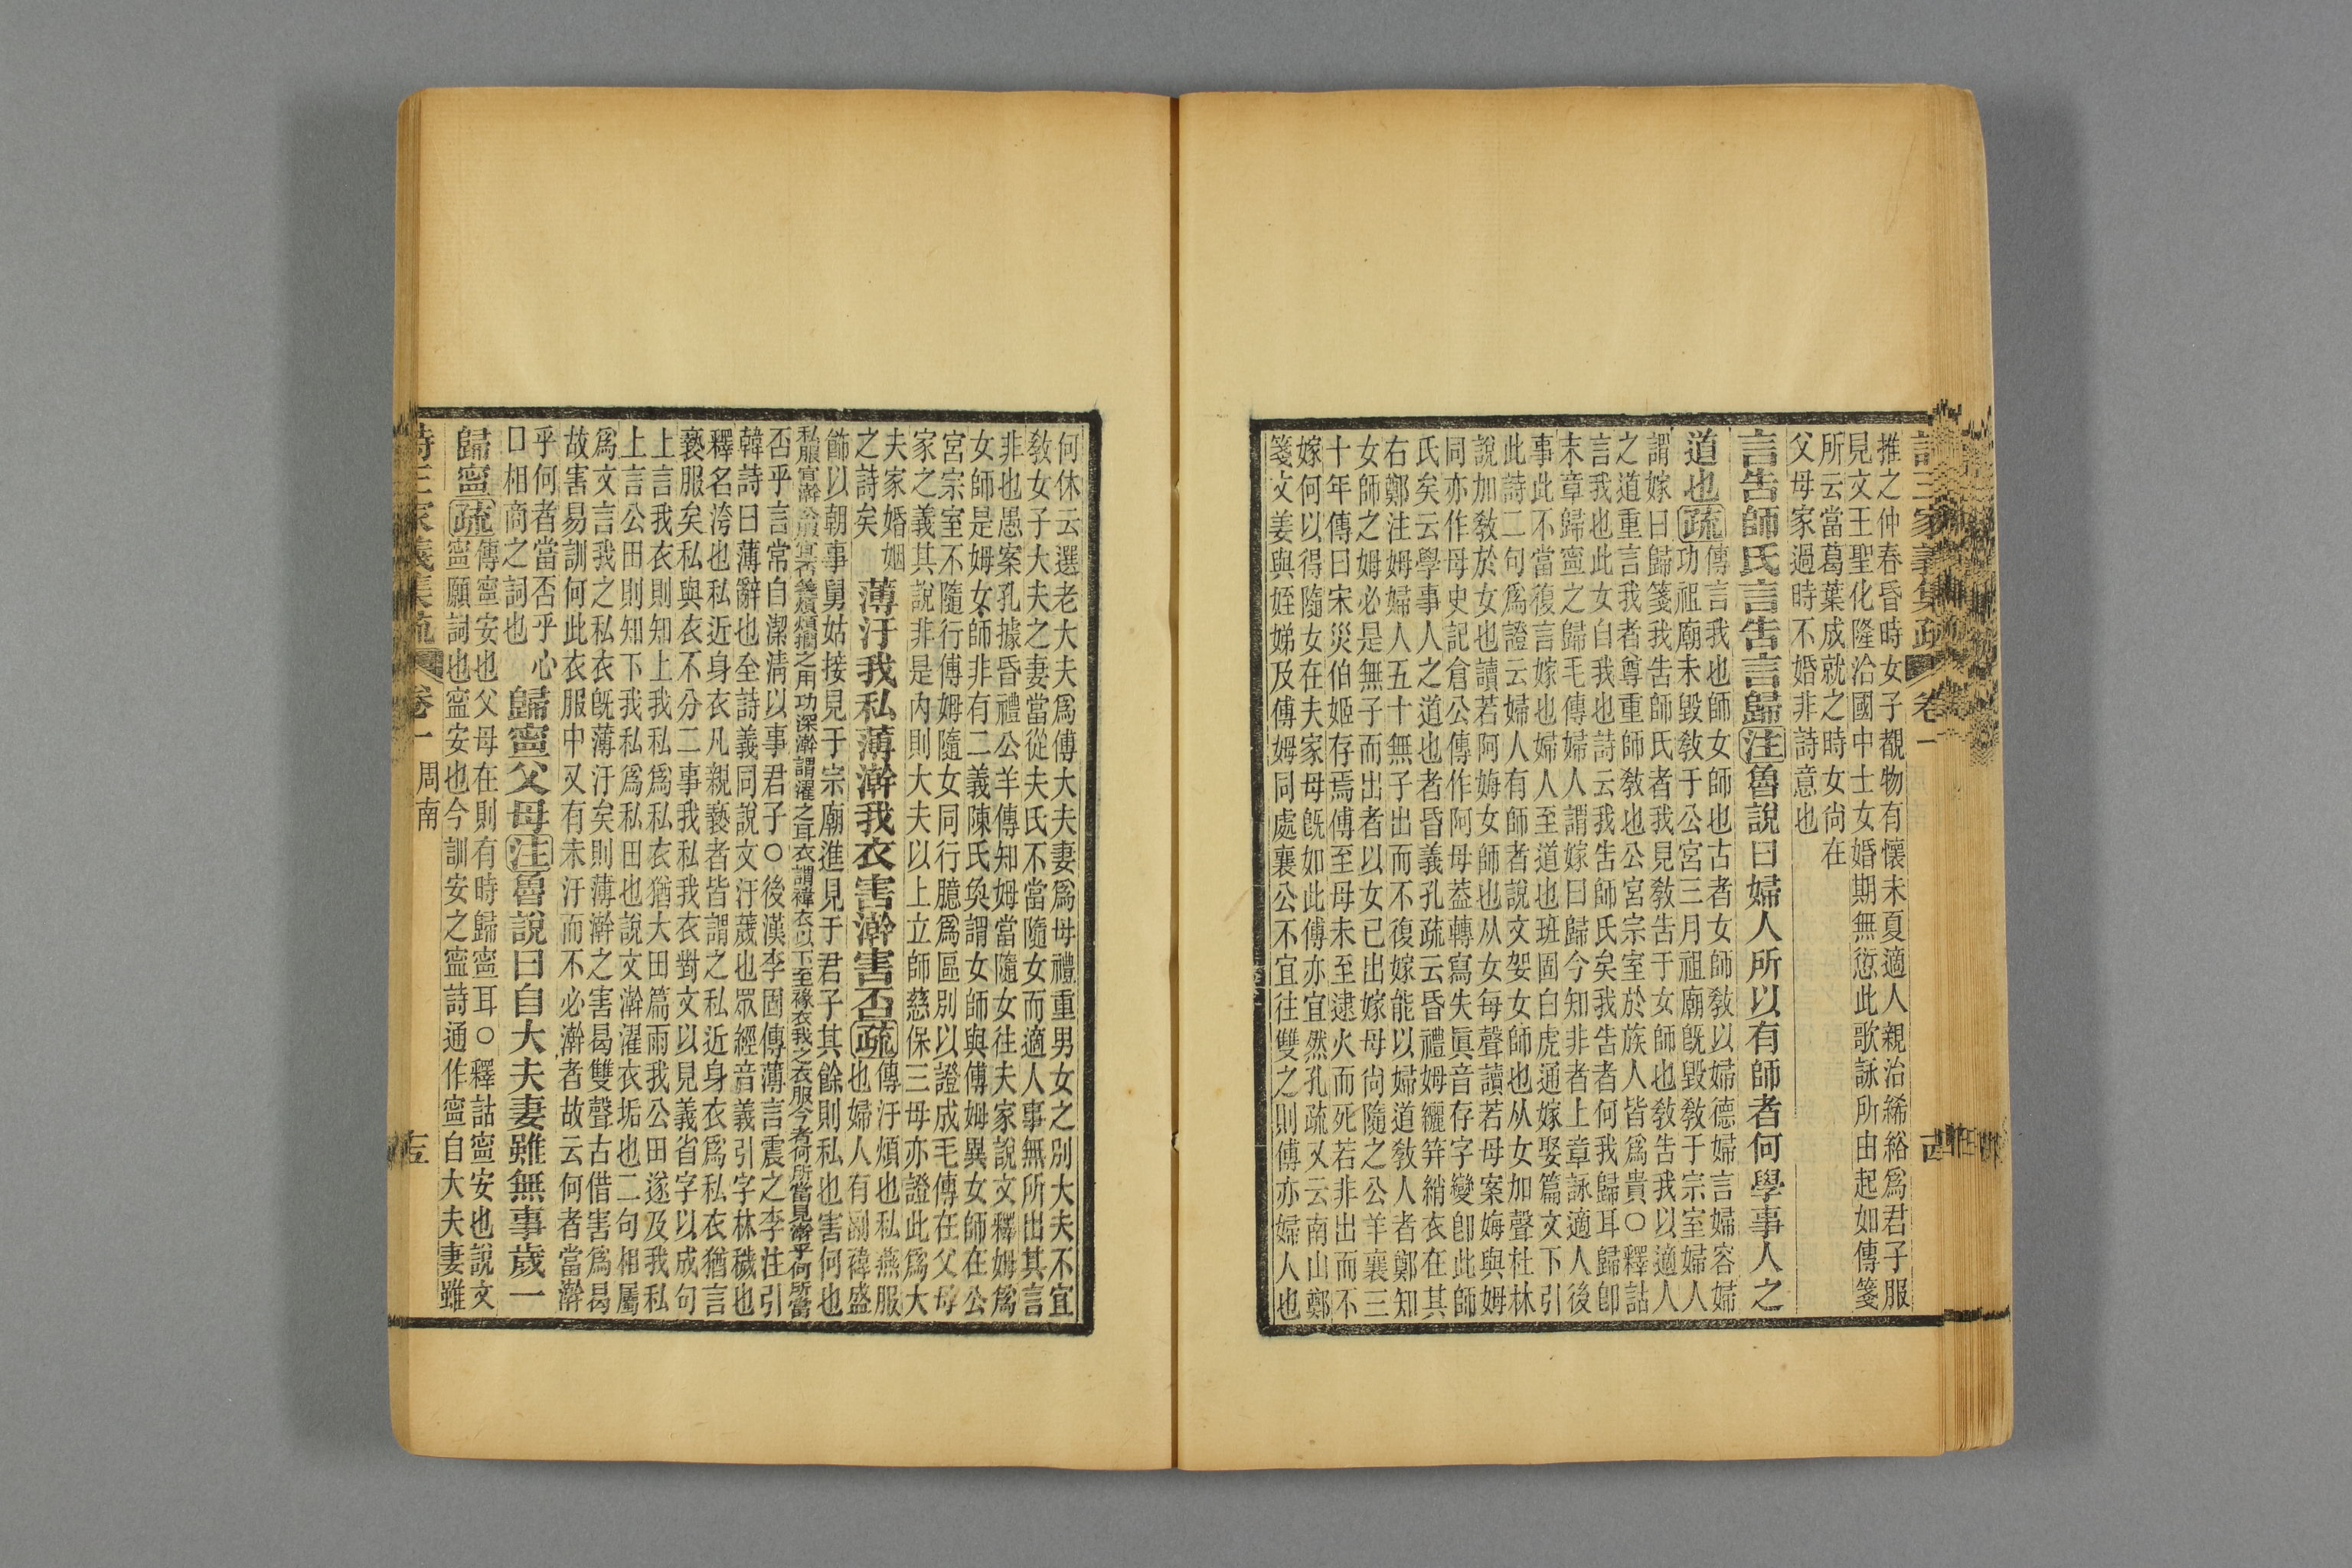 詩三家義集疏 卷一
推之仲春昏時女子覩物有懷未夏適人親治絺綌爲君子服
見文王聖化隆洽國中士女婚期無愆此歌詠所由起如傳箋
所云當葛葉成就之時女尚在
父母家過時不婚非詩意也
言告師氏言告言歸注魯說曰婦人所以有師者何學事人之
道也疏傳言我也師女師也古者女師敎以婦德婦言婦容婦
功祖廟未毀敎于公宮三月祖廟旣毀敎于宗室婦人
謂嫁曰歸箋我告師氏者我見敎告于女師也敎告我以適人
之道重言我者尊重師敎也公宮宗室於族人皆爲貴○釋詁
言我也此女自我也詩云我告師氏矣我告者何我歸耳歸卽
末章歸寧之歸毛傳婦人謂嫁曰歸今知非者上章詠適人後
事此不當復言嫁也婦人至道也班固白虎通嫁娶篇文下引
此詩二句爲證云婦人有師者說文妿女師也从女加聲杜林
說加敎於女也讀若阿娒女師也从女每聲讀若母案娒與姆
同亦作母史記倉公傳作阿母葢轉寫失眞音存字變卽此師
氏矣云學事人之道也者昏義孔疏云昏禮姆纚笄綃衣在其
右鄭注姆婦人五十無子出而不復嫁能以婦道敎人者鄭知
女師之姆必是無子而出者以女已出嫁母尚隨之公羊襄三
十年傳曰宋災伯姬存焉傅至母未至逮火而死若非出而不
嫁何以得隨女在夫家母旣如此傅亦宜然孔疏又云南山鄭
箋文姜與姪娣及傅姆同處襄公不宜往雙之則傅亦婦人也
何休云選老大夫爲傅大夫妻爲母禮重男女之別大夫不宜
敎女子大夫之妻當從夫氏不當隨女而適人事無所出其言
非也愚案孔據昏禮公羊傳知姆當隨女往夫家說文釋姆爲
女師是姆女師非有二義陳氏奐謂女師與傅姆異女師在公
宮宗室不隨行傅姆隨女同行臆爲區別以證成毛傳在父母
家之義其說非是內則大夫以上立師慈保三母亦證此爲大
夫家婚姻
之詩矣
薄汙我私薄澣我衣害澣害否疏傳汙煩也私燕服
也婦人有副褘盛
飾以朝事舅姑接見于宗廟進見于君子其餘則私也害何也
私服宜澣公服宜否箋煩煩撋之用功深澣謂濯之耳衣謂褘衣以下至褖衣我之衣服今者何所當見澣乎何所當
否乎言常自潔淸以事君子○後漢李固傳薄言震之李注引
韓詩曰薄辭也至詩義同說文汙薉也眾經音義引字林穢也
釋名洿也私近身衣凡親褻者皆謂之私近身衣爲私衣猶言
褻服矣私與衣不分二事我私我衣對文以見義省字以成句
上言我衣則知上我私爲私衣猶大田篇雨我公田遂及我私
上言公田則知下我私爲私田也說文澣濯衣垢也二句相屬
爲文言我之私衣旣薄汙矣則薄澣之害曷雙聲古借害爲曷
故害易訓何此衣服中又有未汙而不必澣者故云何者當澣
乎何者當否乎心
口相商之詞也
歸寧父母注魯說曰自大夫妻雖無事歲一
歸寧疏傳寧安也父母在則有時歸寧耳○釋詁寧安也說文
寧願詞也寍安也今訓安之寍詩通作寧自大夫妻雖
詩三家義集疏 卷一 周南